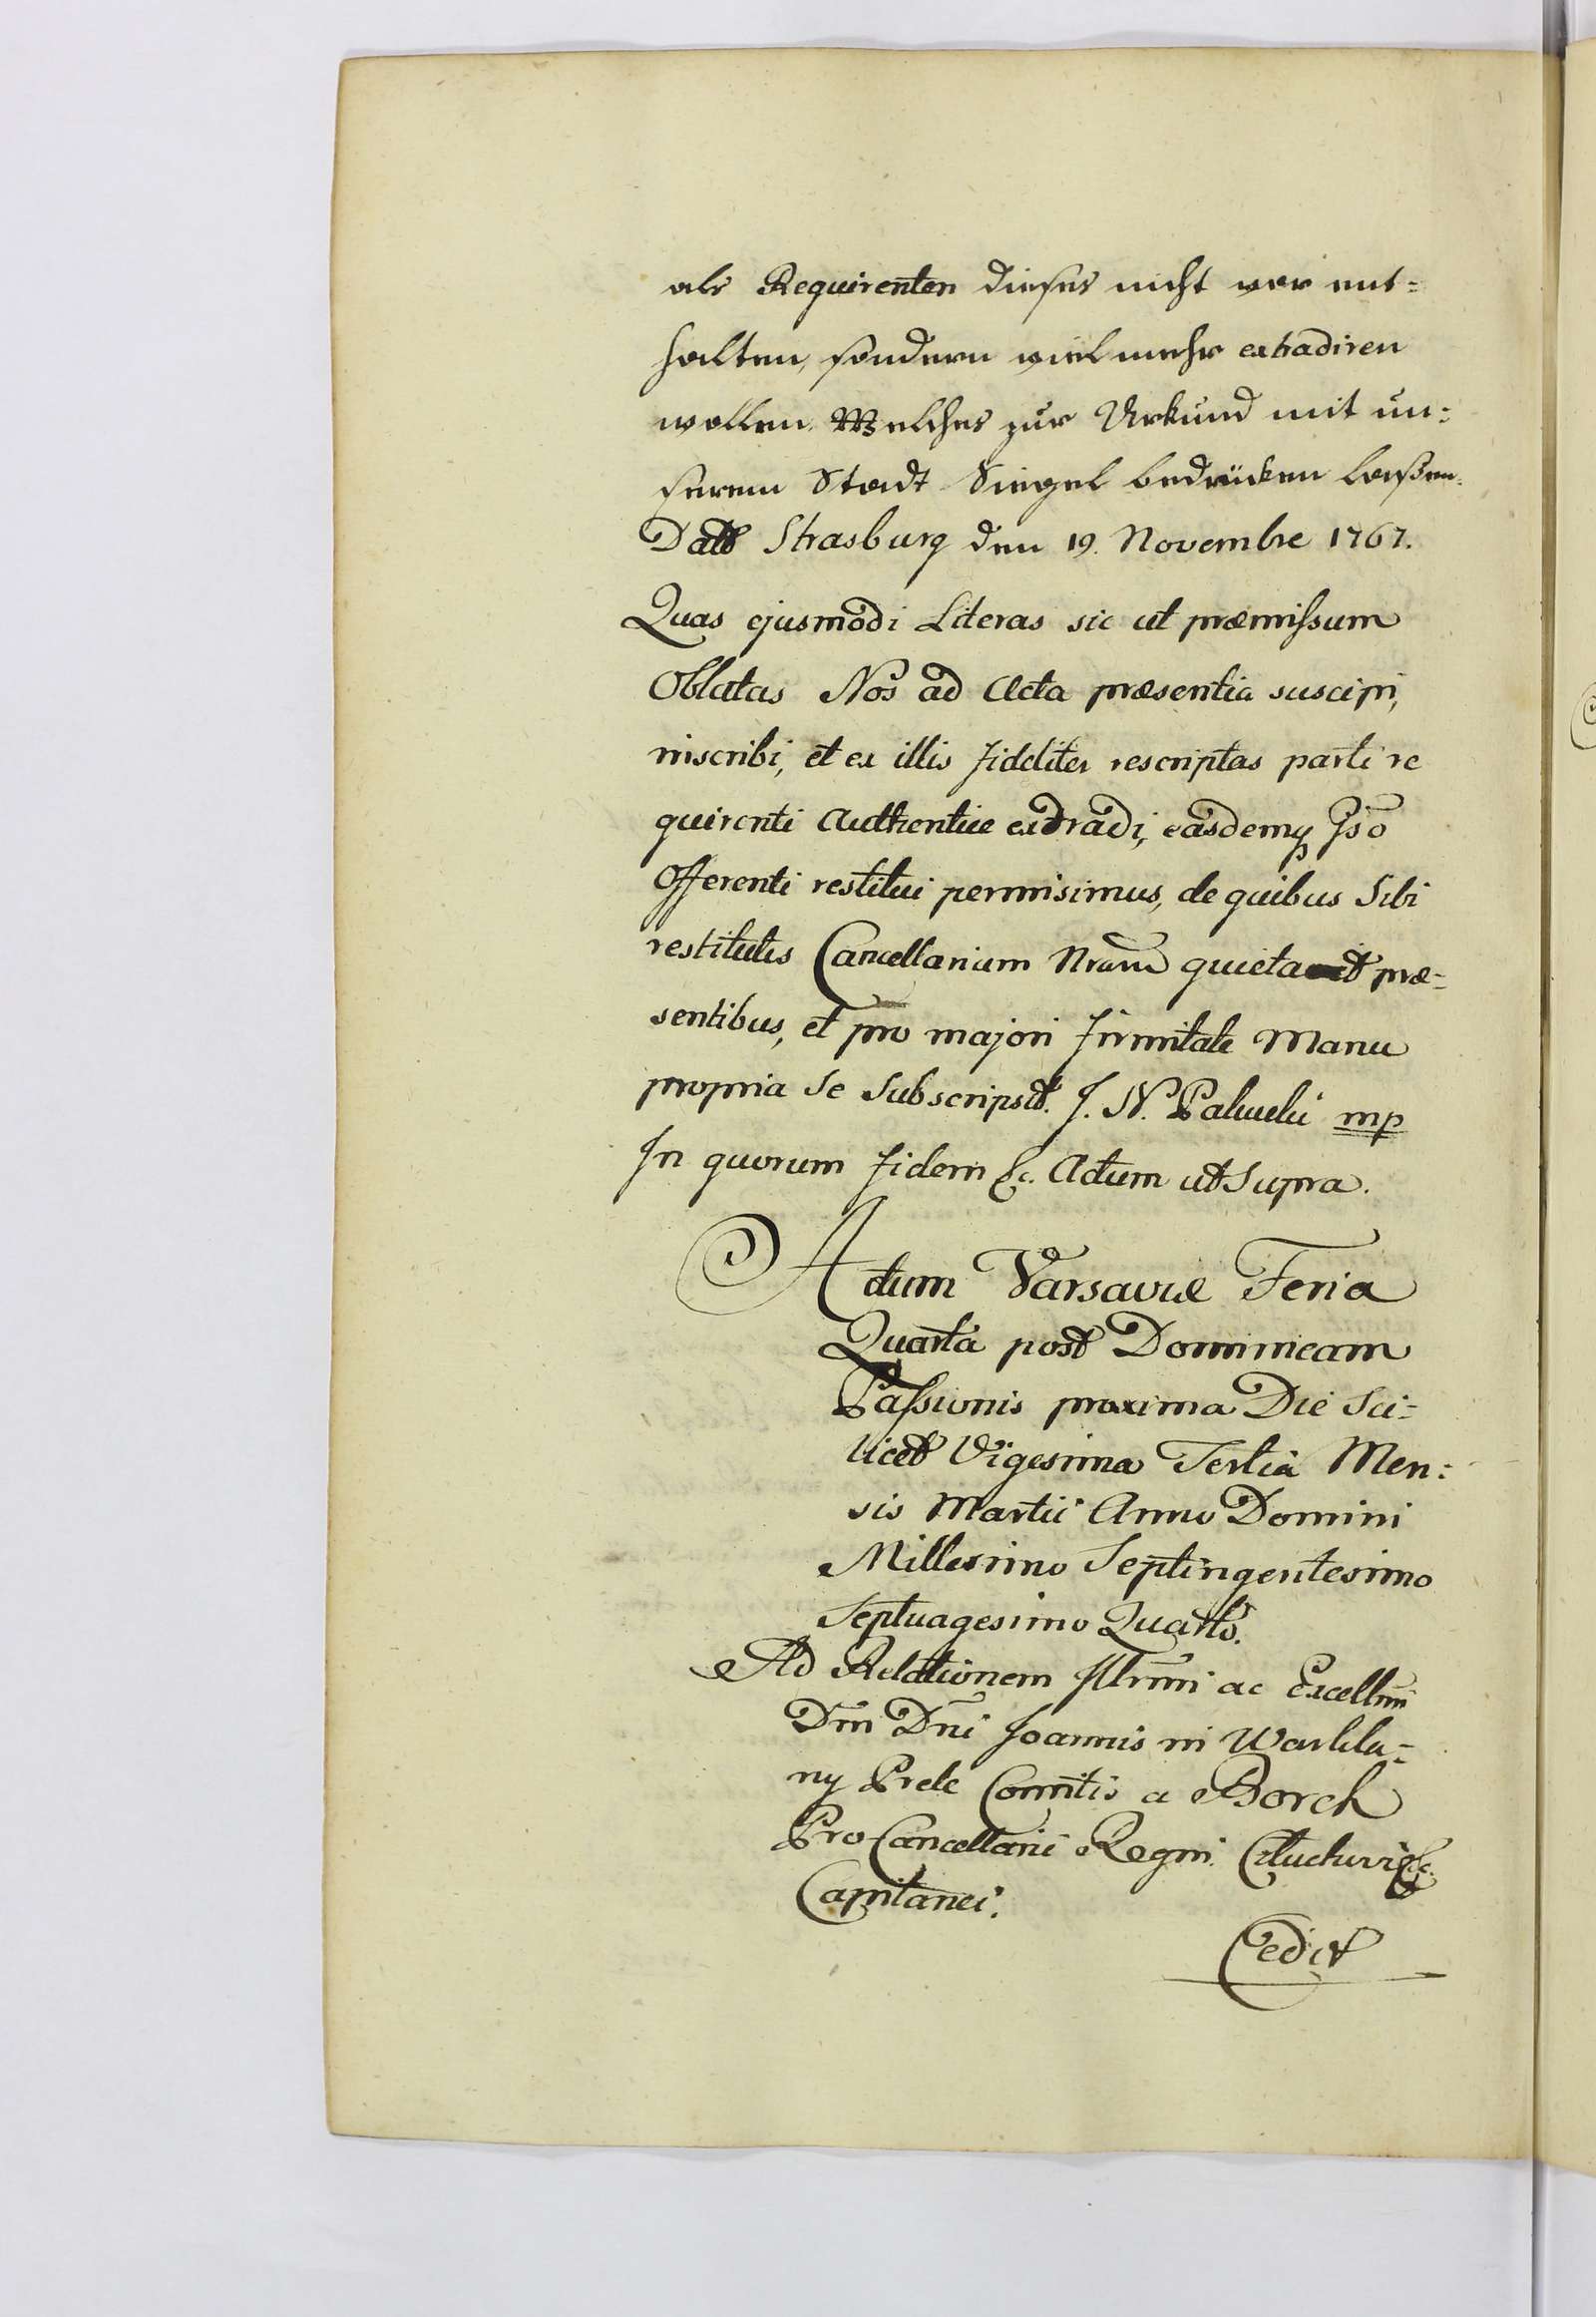 als Requirenten dieses nicht vor ent=
halten, sondern viel mehr extradiren
wollen. Welches zur Urkund mit un=
serem Stadt Siegel bedrücken laßen.
Datt Strasburg den 19. Novembre 1767.
Quas ejusmodi Literas sic ut præmissum
Oblatas Nos ad Acta præsentia suscipi,
inscribi, et ex illis fideliter rescriptas parti re
quirenti Authentice extradi, easdemq
Offerenti restitui permisimus, de quibus Sibi
restitutis Cancellariam Nram quietavit præ=
sentibus, et pro majori firmitate Manu
propria Se Subscripsit. J. N. mp
In quorum fidem &c. Actum ut Supra.
Actum Varsaviæ Feria
Quarta post Dominicam
Passionis proxima Die Sci=
licet Vigesima Tertia Men=
sis Martii Anno Domini
Millesimo Septingentesimo
Septuagesimo Quarto.
Ad Relationem Illrmi ac Excellmi
Dni Dni Joannis in Warkla=
ny Prele Comitis a Borch
Pro Cancellarii Regni &c.
Capitanei.
Cedit